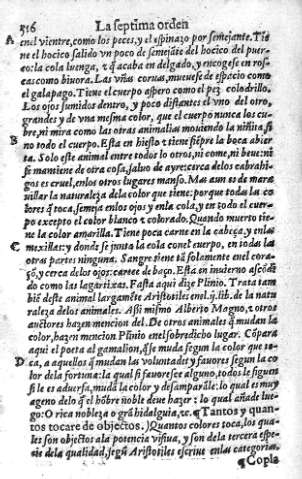 516 La septima orden
A enel vientre, como los peces, y el espinazo por semejante. Tie
ne el hocico salido vn poco de semejãte del hocico del puer-
co: la cola luenga, ꝛ q̃ acaba en delgado, y encogese en ros-
cas como biuora. Las vñas coruas, mueuese de espacio como
el galapago. Tiene el cuerpo aspero como el pez colodrillo.
Los ojos sumidos dentro, y poco distantes el vno del otro,
grandes y de vna mesma color, que el cuerpo nunca los cu-
bre, ni mira como las otras animalias mouiendo la niñita, si
B no todo el cuerpo. Esta en hiesto ꝛ tiene siẽpre la boca abier
ta. Solo este animal entre todos lo otros, ni come, ni beue: ni
se mantiene de otra cosa, saluo de ayre: cerca delos cabrahi-
gos es cruel, enlos otros lugares manso. Mas aun es de mara
uillar la naturaleza dela color que tiene: porque todas las co
lores q̃ toca, semeja enlos ojos y enla cola, y en todo el cuer-
po excepto el color blanco ꝛ colorado. Quando muerto tie-
ne la color amarilla. Tiene poca carne en la cabeça, y enlas
C mexillas: y donde se junta la cola conel cuerpo, en todas las
otras partes ninguna. Sangre tiene tã solamente enel cora-
çõ, y cerca delos ojos: carece de baço. Esta en inuierno ascõdi
do como las lagartixas. Fasta aqui dize Plinio. Trata tam
biẽ deste animal largamẽte Aristotiles enel .ij. lib. de la natu
raleza delos animales. Assi mismo Alberto Magno, ꝛ otros
auctores hazen mencion del. De otros animales q̃ mudan la
color, hazen mencion Plinio enel sobredicho lugar. Cõpara
aqui el poeta al gamalion, q̃ se muda segun la color que to-
D ca, a aquellos q̃ mudan las voluntades y fauores segun la co
lor dela fortuna: la qual si fauoresce alguno, todos le siguen
si le es aduersa, mudã la color y desamparãle: lo qual es muy
ageno delo q̃ el hõbre noble deue hazer: lo qual añade lue-
go: O rica nobleza o grã hidalguia, ꝛc. ¶ Tantos y quan-
tos tocare de objectos.) Quantos colores toca, los qua-
les son objectos ala potencia visiua, y son dela tercera espe-
cie dela qualidad, segũ Aristotiles escriue enlas categorias.
¶ Copla